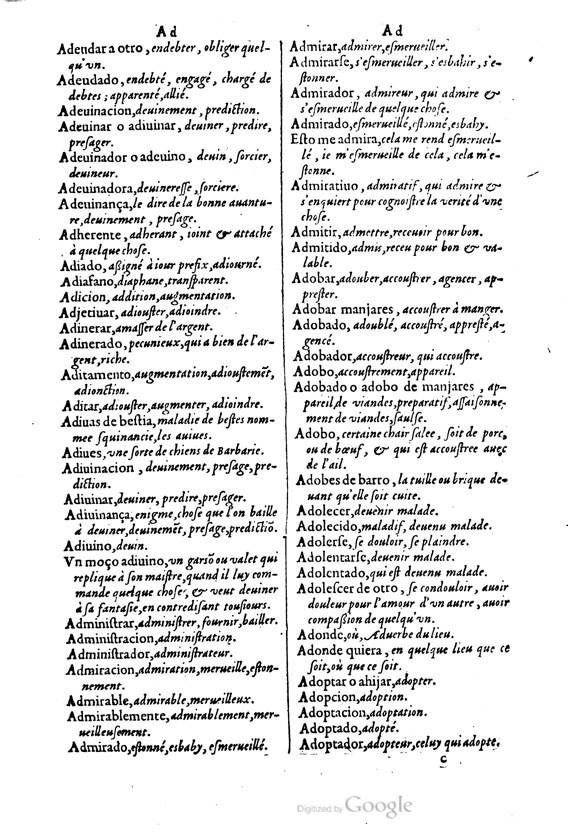 Ad
Adeudar a otro, endebter, obliger quel-
qu'vn.
Adeudado, endebté, engagé, chargé de
debtes; apparenté, allié.
Adeuinacion, deuinement, prediction.
Adeuinar o adiuinar, deuiner, predire,
presager.
Adeuinador o adeuino, deuin, sorcier,
deuineur.
Adeuinadora, deuineresse, sorciere.
Adeuinança, le dire de la bonne auantu-
re, deuinement, presage.
Adherente, adherant, ioint & attaché
à quelque chose.
Adiado, aßigné à iour prefix, adiourné.
Adiafano, diaphane, transparent.
Adicion, addition, augmentation.
Adjetiuar, adiouster, adioindre.
Adinerar, amasser de l'argent.
Adinerado, pecunieux, qui a bien de l'ar-
gent, riche.
Aditamento, augmentation, adioustemẽt,
adionction.
Aditar, adiouster, augmenter, adioindre.
Adiuas de bestia, maladie de bestes nom-
mee squinancie, les auiues.
Adiues, vne sorte de chiens de Barbarie.
Adiuinacion, deuinement, presage, pre-
diction.
Adiuinar, deuiner, predire, presager.
Adiuinança, enigme, chose que l'on baille
à deuiner, deuinemẽt, presage, predictiõ.
Adiuino, deuin.
Vn moço adiuino, vn garsõ ou valet qui
replique à son maistre, quand il luy com-
mande quelque chose, & veut deuiner
à sa fantasie, en contredisant tousiours.
Administrar, administrer, fournir, bailler.
Administracion, administration.
Administrador, administrateur.
Admiracion, admiration, merueille, eston-
nement.
Admirable, admirable, merueilleux.
Admirablemente, admirablement, mer-
ueilleusement.
Admirado, estonné, esbaby, esmerueillé.
Ad
Admirar, admirer, esmerueiller.
Admirarse, s'esmerueiller, s'esbahir, s'e-
stonner.
Admirador, admireur, qui admire &
s'esmerueille de quelque chose.
Admirado, esmerueillé, estonné, esbahy.
Esto me admira, cela me rend esmerueil-
lé, ie m'esmerueille de cela, cela m'e-
stonne.
Admiratiuo, admiratif, qui admire &
s'enquiert pour cognoistre la verité d'vne
chose.
Admitir, admettre, receuoir pour bon.
Admitido, admis, receu pour bon & va-
lable.
Adobar, adouber, accoustrer, agencer, ap-
prester.
Adobar manjares, accoustrer à manger.
Adobado, adoublé, accoustré, appresté, a-
gencé.
Adobador, accoustreur, qui accoustre.
Adobo, accoustrement, appareil.
Adobado o adobo de manjares, ap-
pareil, de viandes, preparatif, assaisonne-
ment de viandes, saulse.
Adobo, certaine chair salee, soit de porc,
ou de bœuf, & qui est accoustree auec
de l'ail.
Adobes de barro, la tuille ou brique de-
uant qu'elle soit cuite.
Adolecer, deuenir malade.
Adolecido, maladif, deuenu malade.
Adolerse, se douloir, se plaindre.
Adolentarse, deuenir malade.
Adolentado, qui est deuenu malade.
Adolescer de otro, se condouloir, auoir
douleur pour l'amour d'vn autre, auoir
compaßion de quelqu'vn.
Adonde, où, Aduerbe du lieu.
Adonde quiera, en quelque lieu que ce
soit, où que ce soit.
Adoptar o ahijar, adopter.
Adopcion, adoption.
Adoptacion, adoptation.
Adoptado, adopté.
Adoptador, adopteur, celuy qui adopte.
C
Digitized by Google